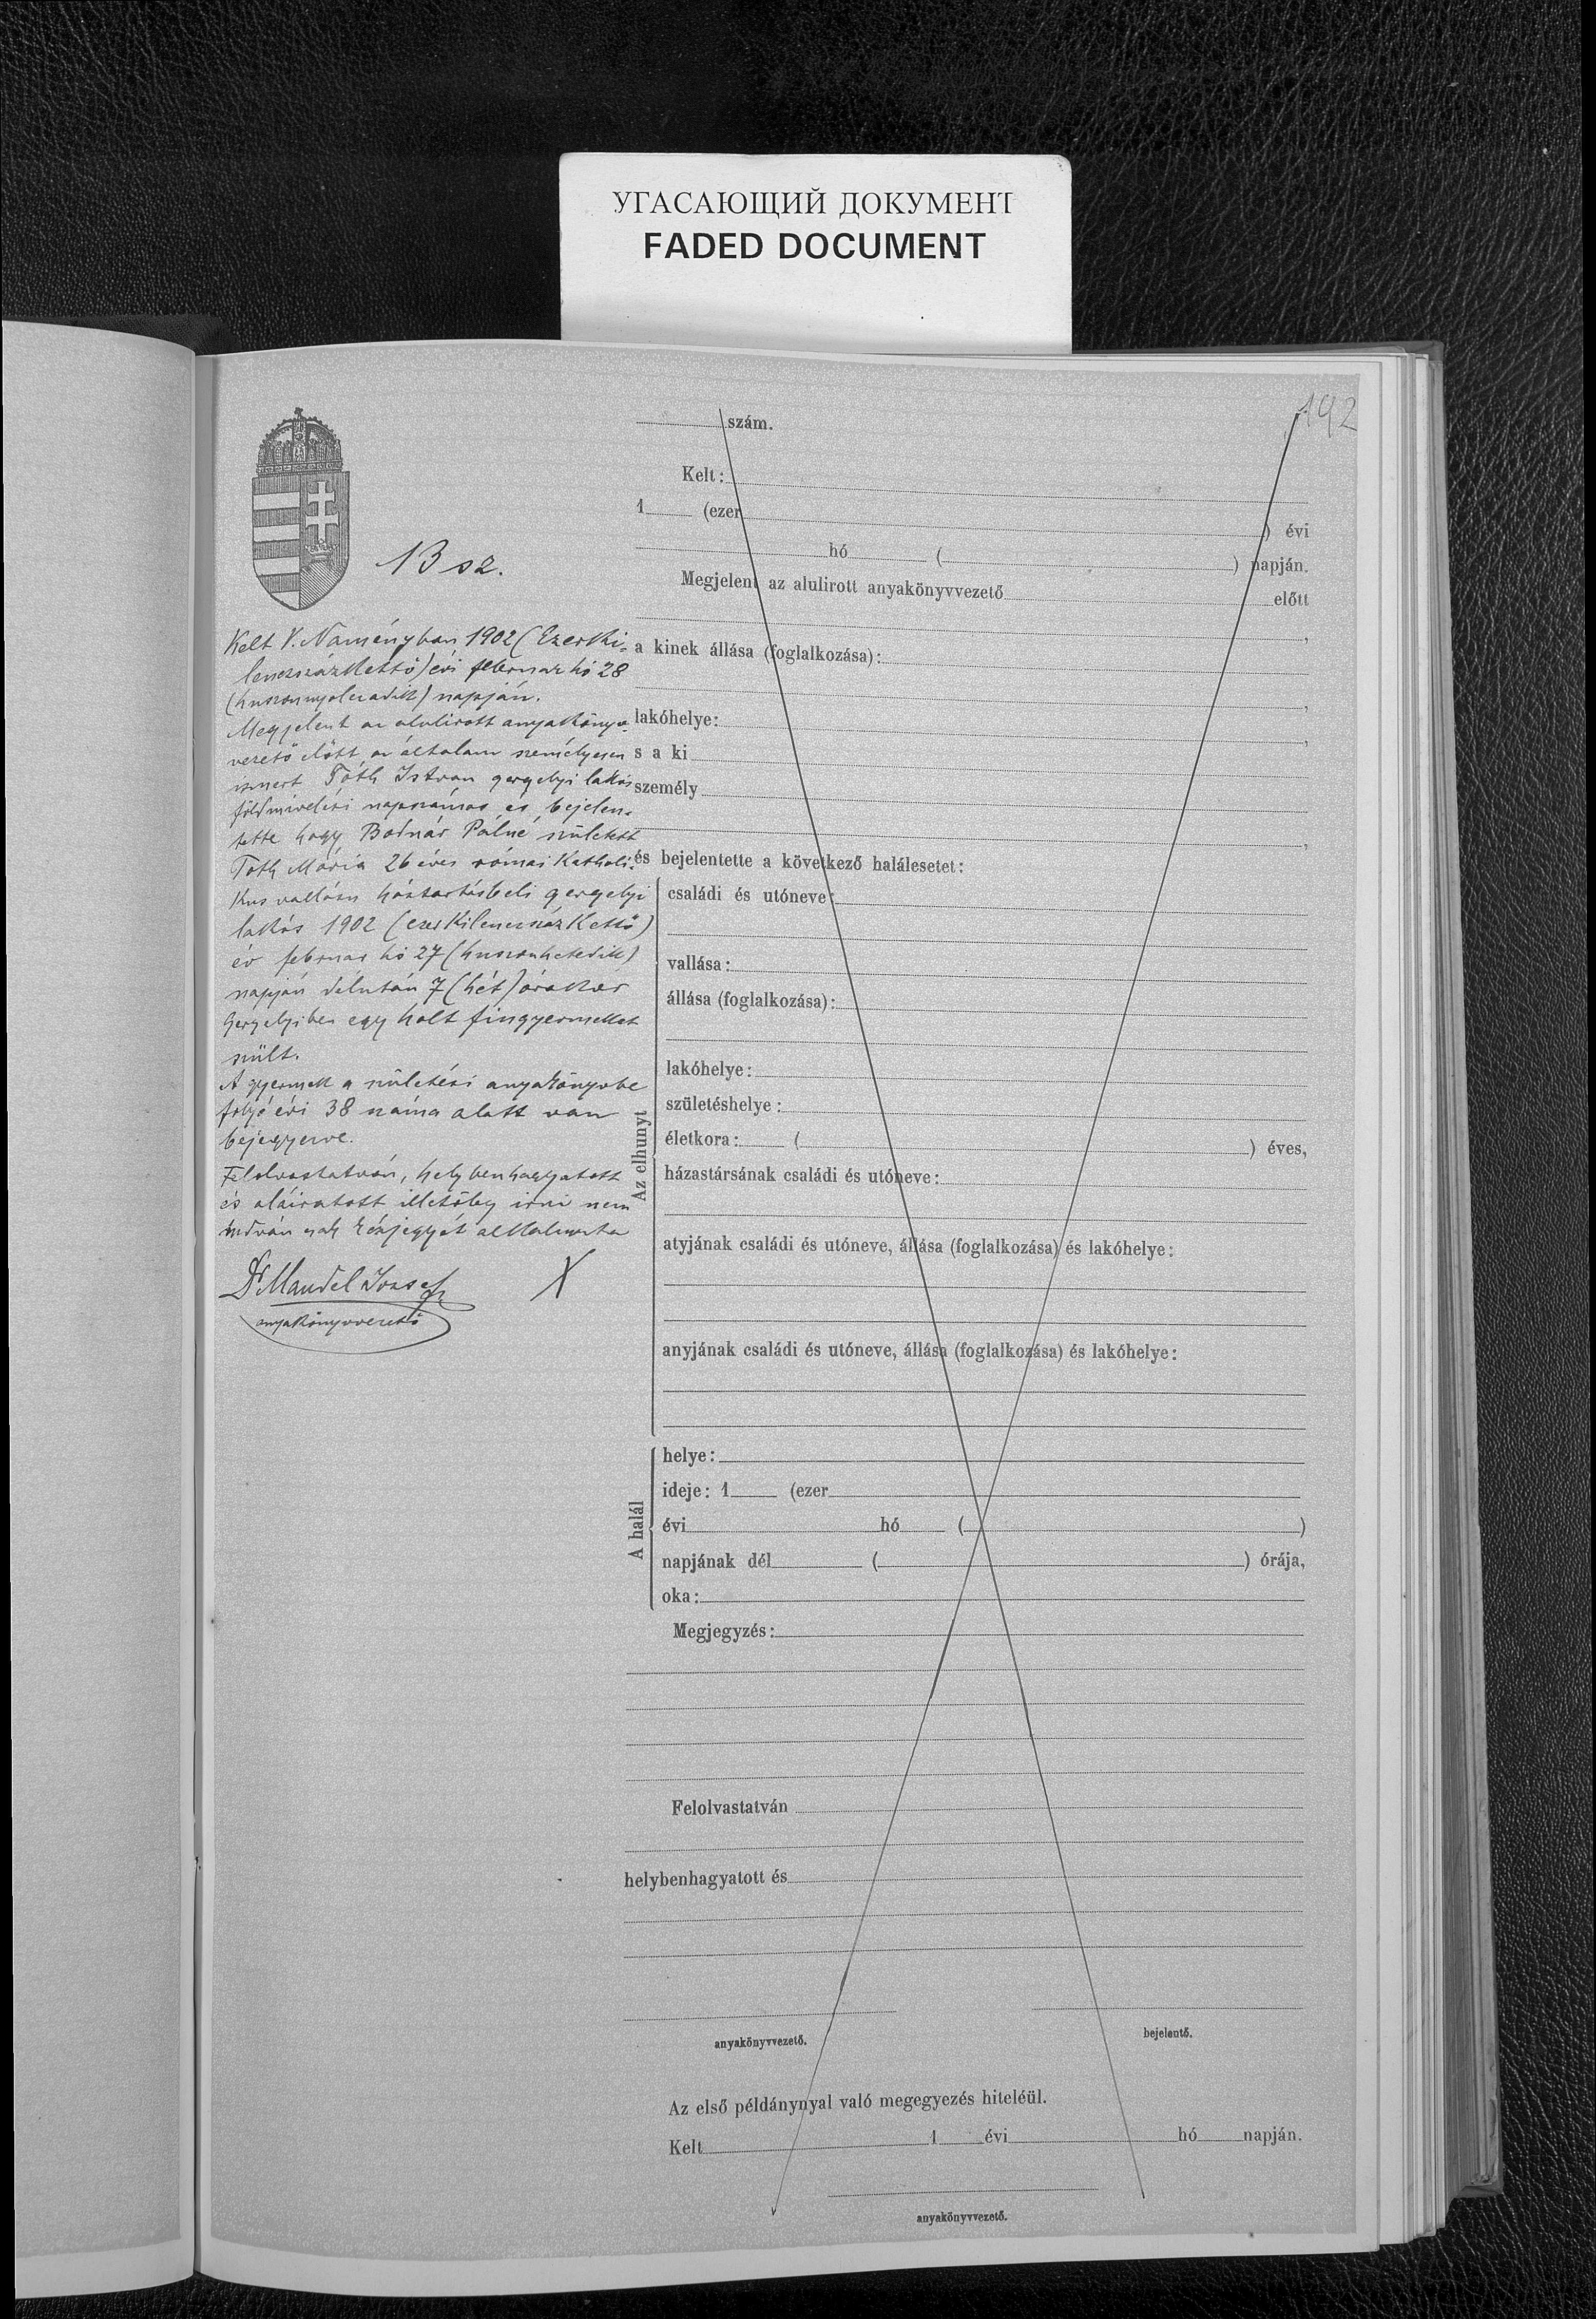 УГАСАЮЩИЙ ДОКУМЕНТ
FADED DOCUMENT
192
13 sz.
Kelt V. Naményban 1902 (Ezerki-
lenczszázkettő) évi februar hó 28
(huszonnyolczadik) napján.
Megjelent az alulirott anyakönyv-
vezető előtt, az általam személyesen
ismert Tóth Istvan gergelyi lakós
földmivelési napszámos és bejelen-
tette hogy Bodnár Pálné született
Tóth Mária 26 éves római Katholi-
kus vallásu háztartásbeli gergelyi
lakós 1902 (ezerkilenczszázkettő)
év februar hó 27 (huszonhetedik)
napján délután 7 (hét) órakor
Gergelyiben egy halt fiugyermeket
szült.
A gyermek a születési anyakönyvbe
folyó évi 38 száma alatt van
bejegyezve.
Felolvastatván, helybenhagyatott
és aláiratott illetőleg irni nem
tudván csak kézjegyét alkalmazta
Dr Mandel József
X
anyakönyvvezető
szám.
Kelt:
1 (ezer ) évi
hó ( ) napján.
Megjelent az alulirott anyakönyvvezető előtt
,
a kinek állása (foglalkozása):
,
lakóhelye: ,
s a ki
személy
,
és bejelentette a következő halálesetet:
Az elhunyt
családi és utóneve:
vallása:
állása (foglalkozása):
lakóhelye:
születéshelye:
életkora: ( ) éves,
házastársának családi és utóneve:
atyjának családi és utóneve, állása (foglalkozása) és lakóhelye:
anyjának családi és utóneve, állása (foglalkozása) és lakóhelye:
A halál
helye:
ideje: 1 (ezer
évi hó ( )
napjának dél ( ) órája,
oka:
Megjegyzés:
Felolvastatván
helybenhagyatott és
anyakönyvvezető. bejelentő.
Az első példánynyal való megegyezés hiteléül.
Kelt 1 évi hó napján.
anyakönyvvezető.